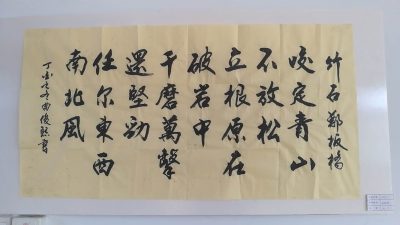 竹石鄭板橋
咬定青山
不放松
立根原在
破岩中
千磨萬擊
還堅勁
任尔東西
南北風